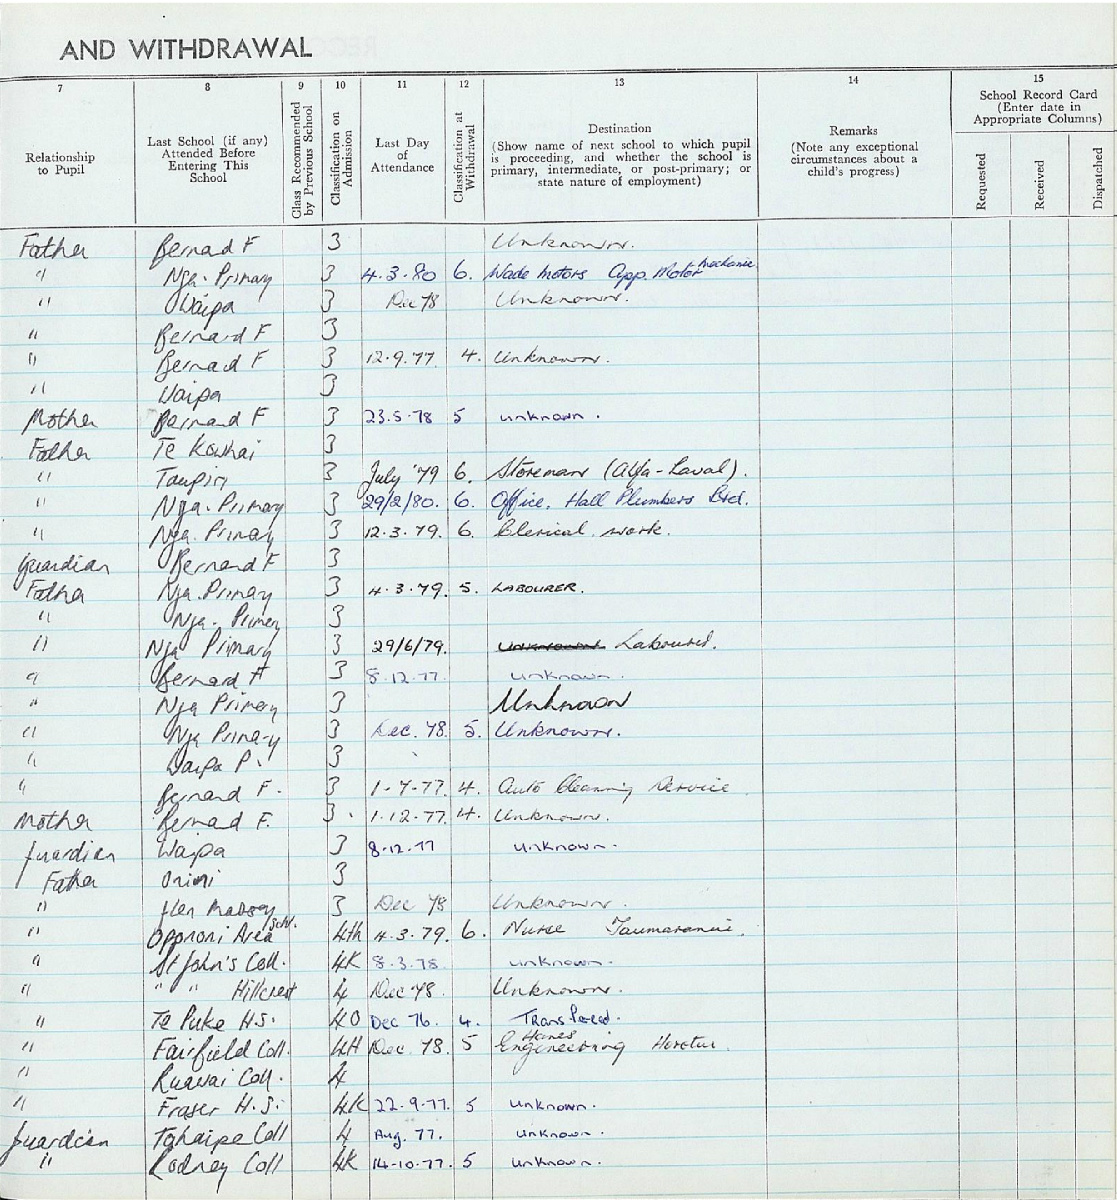 AND WITHDRAWAL
7 8 9 10 11 12 13 14 15
Relationship to Pupil
Last School (if any) Attended Before Entering This School
Class Recommended by Previous School
Classification on Admission
Last Day of Attendance
Classification at Withdrawal
Destination (Show name of next school to which pupil is proceeding, and whether the school is primary, intermediate, or post-primary; or state nature of employment)
Remarks (Note any exceptional circumstances about a child's progress)
School Record Card (Enter date in Appropriate Columns)
Requested
Received
Dispatched
Father Bernad F 3 Unknown.
" Nga. Primary 3 4.3.80 6. Wade Motors App. Motor Mechanic
" Waipa 3 Dec 78 Unknown.
" Bernard F 3
" Bernad F 3 12.9.77 4. Unknown.
" Waipa 3
Mother Bernard F 3 23.5.78 5 unknown.
Father Te Kowhai 3
" Taupiri 3 July '79 6. Storeman (Alfa-Laval).
" Nga. Primary 3 29/2/80. 6. Office, Hall Plumbers Ltd.
" Nga. Primary 3 12.3.79. 6. Clerical work.
guardian Bernard F 3
Father Nga. Primary 3 4.3.79. 5. LABOURER.
" Nga. Primary 3
" Nga Primary 3 29/6/79. Unknown Labourer.
" Bernard F 3 8.12.77. unknown.
" Nga Primary 3 Unknown
" Nga Primary 3 Dec. 78. 5. Unknown.
" Waipa P. 3
" Bernard F. 3 1-7-77. 4. Auto Cleaning Service
Mother Bernad F. 3. 1.12.77. 4. Unknown.
guardian Waipa 3 8.12.77 unknown.
Father Orini 3
" Glen Massey 3 Dec 78 Unknown.
" Opononi Area Schl. 4th 4.3.79. 6. Nurse Taumarunui.
" St John's Coll. 4K 8.3.78. unknown.
" " " Hillcrest 4 Dec 78. Unknown.
" Te Puke H.S. 4O Dec 76. 4. Transfered.
" Fairfield Coll. 4H Dec. 78. 5 Engineering Horotiu.
" Ruawai Coll. 4
" Fraser H.S. 4K 22.9.77. 5 unknown.
guardian Coll 4 Aug. 77. unknown.
" Rodney Coll 4K 14-10-77. 5 unknown.